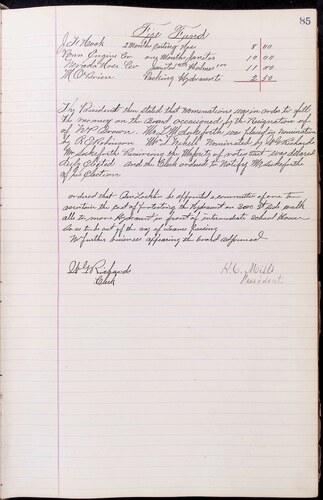 85
Fire Fund
J F Hook 2 Months Cutting Hose 8 00
Engine Co Months Janitor 10 00
Nevada Hose Co 11 00
M O'Brien Packing Hydrants 2 50
The President then stated that nominations was in order to fill
the vacancy on the Board occasioned by the Resignation of
of W P Brown Mr. placed in nomination
by R E Robinson Mr Nominated by W G Richards
Mr Receiving the Majority of votes cast was declared
duly Elected And the Clerk ordered to Notify Mr
of his Election
ordered that be appointed a committee of one to
ascertain the cost of protecting the Hydrant on
also to move Hydrant in front of intermediate School House
so as to be out of the way of Teams Passing
No further business appearing the board adjourned
W G Richards H. C. Mills
Clerk President